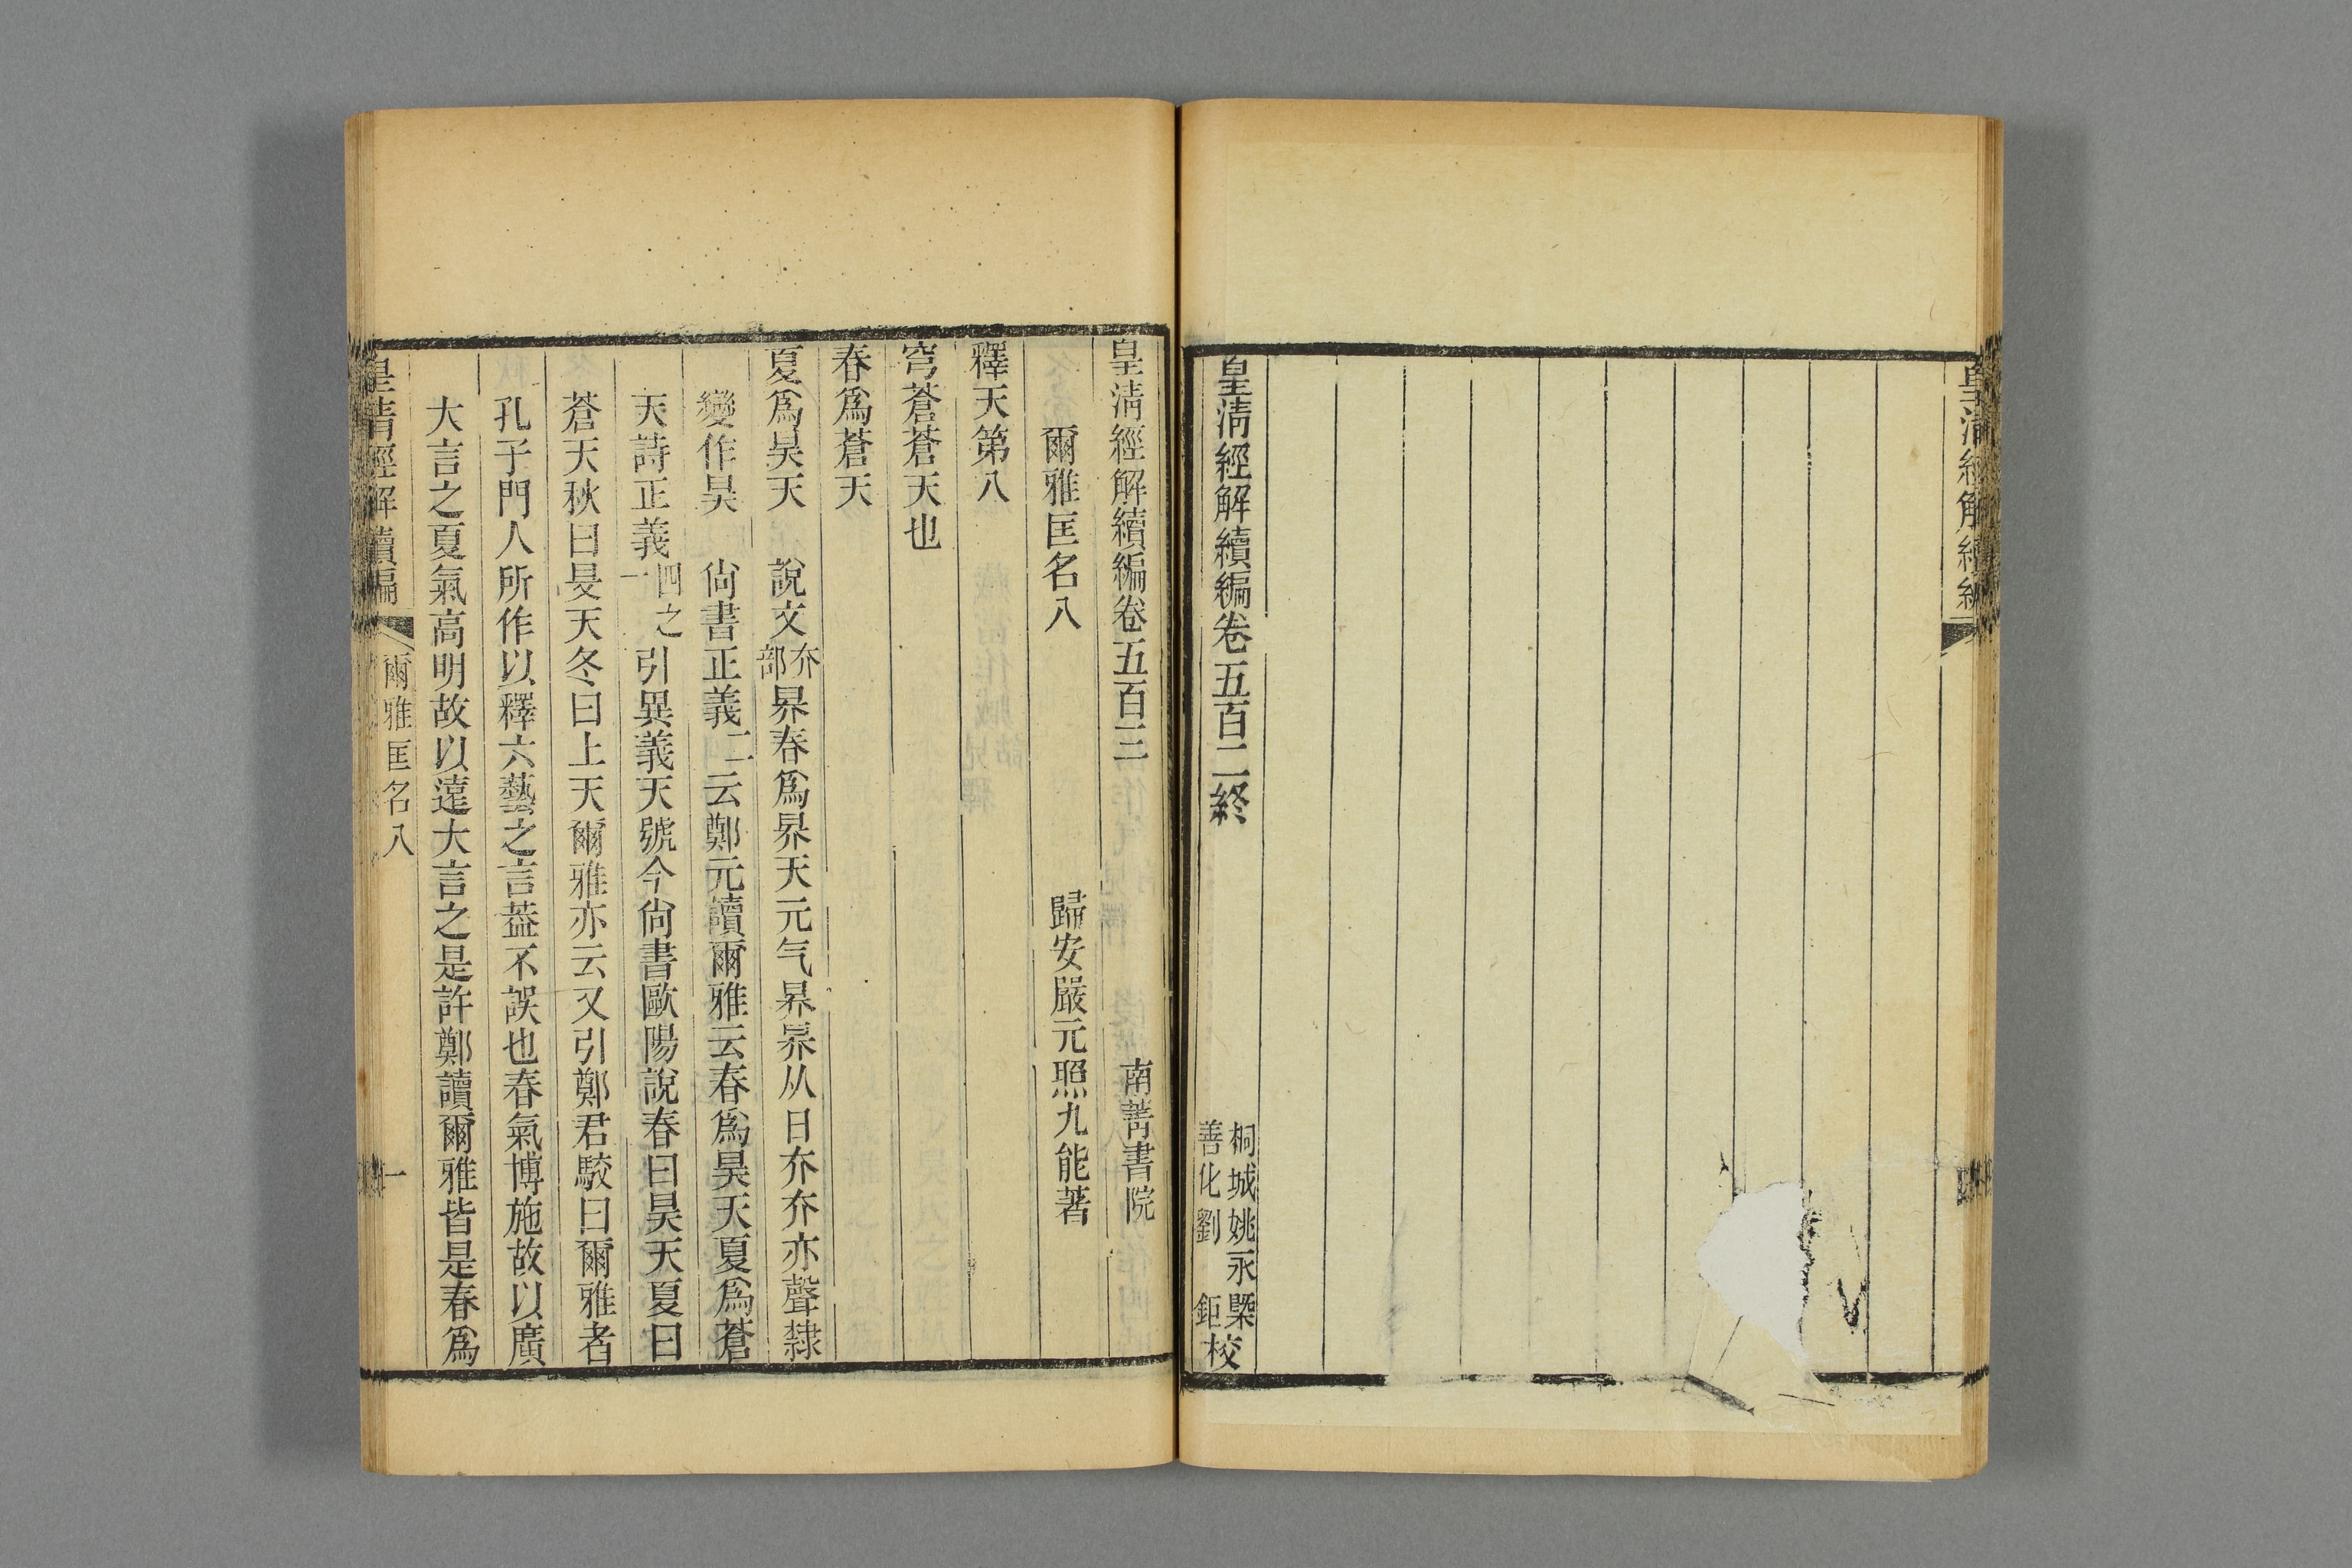 皇清經解續編
皇清經解續編卷五百二終
桐城姚永㮣
善化劉鉅
校
皇清經解續編卷五百三
南菁書院
爾雅匡名八
歸安嚴元照九能著
釋天第八
穹蒼蒼天也
春爲蒼天
夏爲昊天
說文夰部昦春爲昦天元气昦昦从日夰夰亦聲隸
變作昊
尙書正義二云鄭元讀爾雅云春爲昊天夏爲蒼
天詩正義四之一引異義天號今尙書歐陽說春曰昊天夏曰
蒼天秋曰旻天冬曰上天爾雅亦云又引鄭君駮曰爾雅者
孔子門人所作以釋六藝之言葢不誤也春氣博施故以廣
大言之夏氣高明故以遠大言之是許鄭讀爾雅皆是春爲
皇清經解續編
爾雅匡名八
一